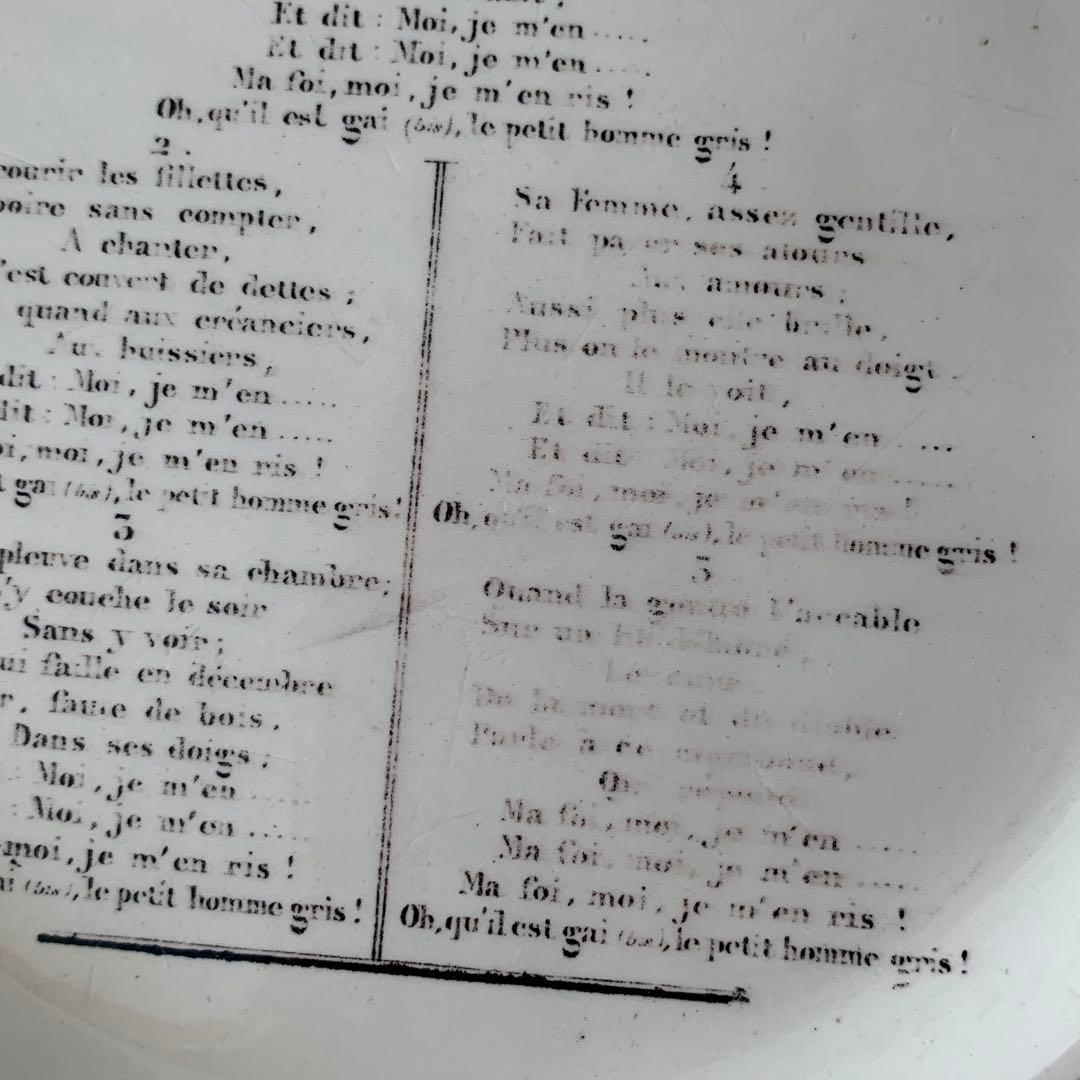 Et dit : Moi, je m'en .....
Et dit : Moi, je m'en .....
Ma foi, moi, je m'en ris !
Oh, qu'il est gai (bis), le petit homme gris !
2.
courir les fillettes,
boire sans compter,
A chanter,
'est couvert de dettes ;
quand aux créanciers,
Aux huissiers,
dit : Moi, je m'en .....
dit : Moi, je m'en .....
moi, je m'en ris !
gai (bis), le petit homme gris !
3
pleuve dans sa chambre ;
s'y couche le soir
Sans y voir ;
faille en décembre
faute de bois,
Dans ses doigs ;
: Moi, je m'en .....
: Moi, je m'en .....
moi, je m'en ris !
(bis), le petit homme gris !
4
Sa femme, assez gentille,
Fait payer ses atours
Aux amours ;
Aussi plus elle brille,
Plus on le montre au doigt.
Il le voit,
Et dit : Moi, je m'en .....
Et dit : Moi, je m'en .....
Ma foi, moi, je m'en ris !
Oh, qu'il est gai (bis), le petit homme gris !
5
Quand la goutte l'accable
Sur un lit
De la mort et du diable
Parle à ce
Qui
Ma foi, moi, je m'en .....
Ma foi, moi, je m'en .....
Ma foi, moi, je m'en ris !
Oh, qu'il est gai (bis), le petit homme gris !